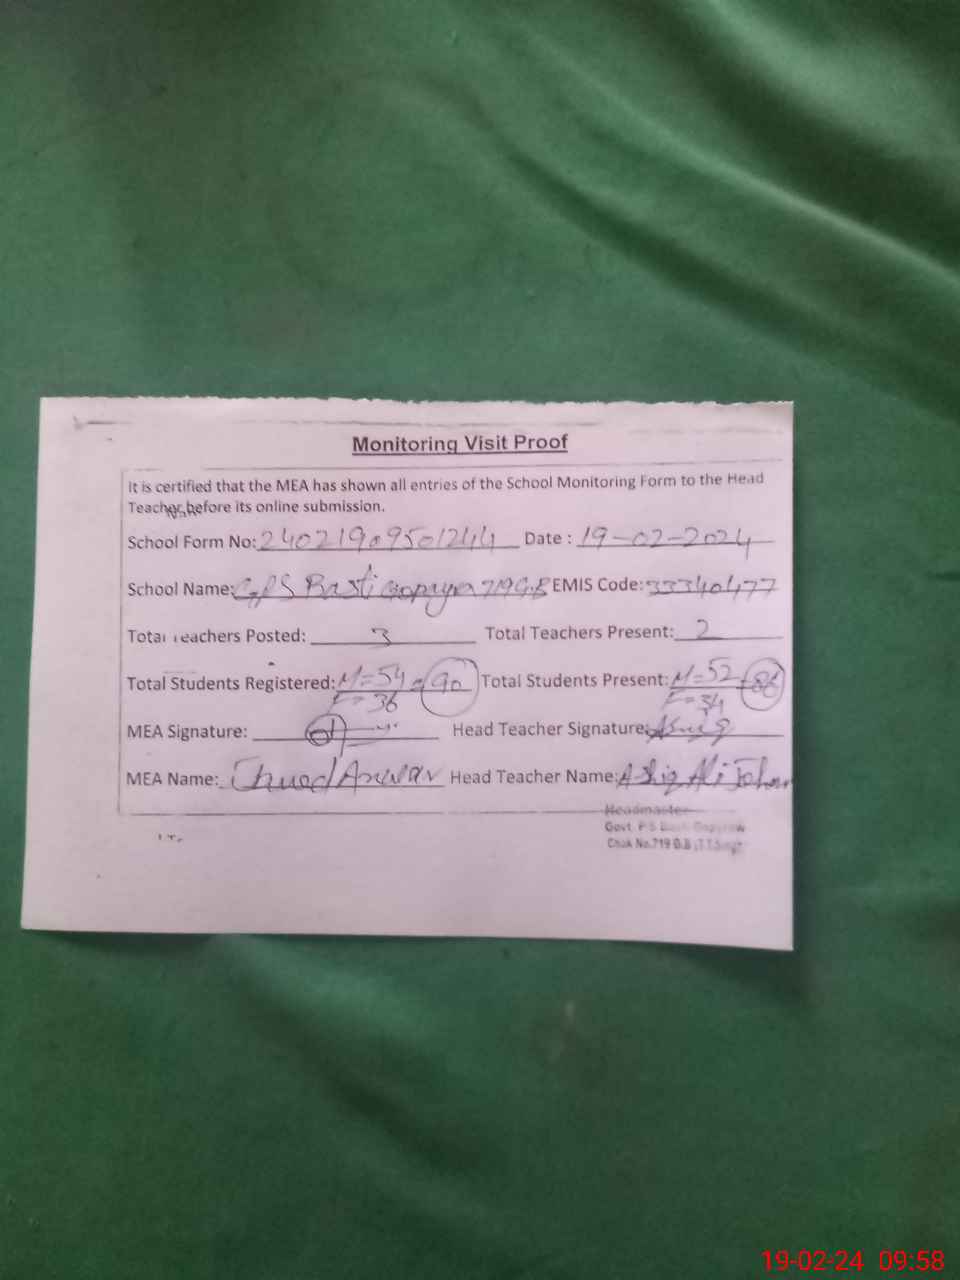 Monitoring Visit Proof
It is certified that the MEA has shown all entries of the School Monitoring Form to the Head
Teacher before its online submission.
School Form No: 24021909501244 Date : 19-02-2024
School Name: GPS Basti 719GB EMIS Code: 33340477
Total Teachers Posted: 3 Total Teachers Present: 2
Total Students Registered: M=54 F=36 = 90 Total Students Present: M=52 F=34 = 86
MEA Signature: Head Teacher Signature:
MEA Name: Anwar Head Teacher Name: Ashiq Ali
Headmaster
Govt. P.S Basti
Chak No.719 G.B (T.T.Singh)
19-02-24 09:58